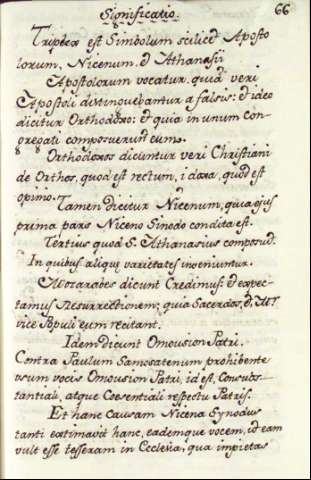 Significatio. 66
Triplex est Simbolum scilicet Aposto
lorum, Nicenum, et Athanasii
Apostolorum vocatur, quia veri
Apostoli distinguebantur a falsis: et ideo
dicitur Orthodoxo: et quia in unum con-
gregati composuerunt eum.
Orthodoxos dicuntur veri Christiani
de Orthos, quod est rectum, i doxa, quod est
opinio.
Tamen dicitur Nicenum, quia ejus
prima pars Niceno Sinodo condita est.
Tertius quod S. Athanasius composuit.
In quibus aliquæ varietates inveniuntur.
Mozarabes dicunt Credimus: et expec-
tamus Resurrectionem; quia Sacerdos, et
vice Populi eum recitant.
Idem dicunt Omousion Patri.
Contra Paulum Samosatenum prohibente
usum vocis Omousion Patri, id est, Consubs-
tantiali, atque Coesentiali respectu Patris.
Et hanc causam Nicena Synodus
tanti extimavit hanc, eademque vocem, id eam
vult esse tesseram in Ecclesia, qua impietas